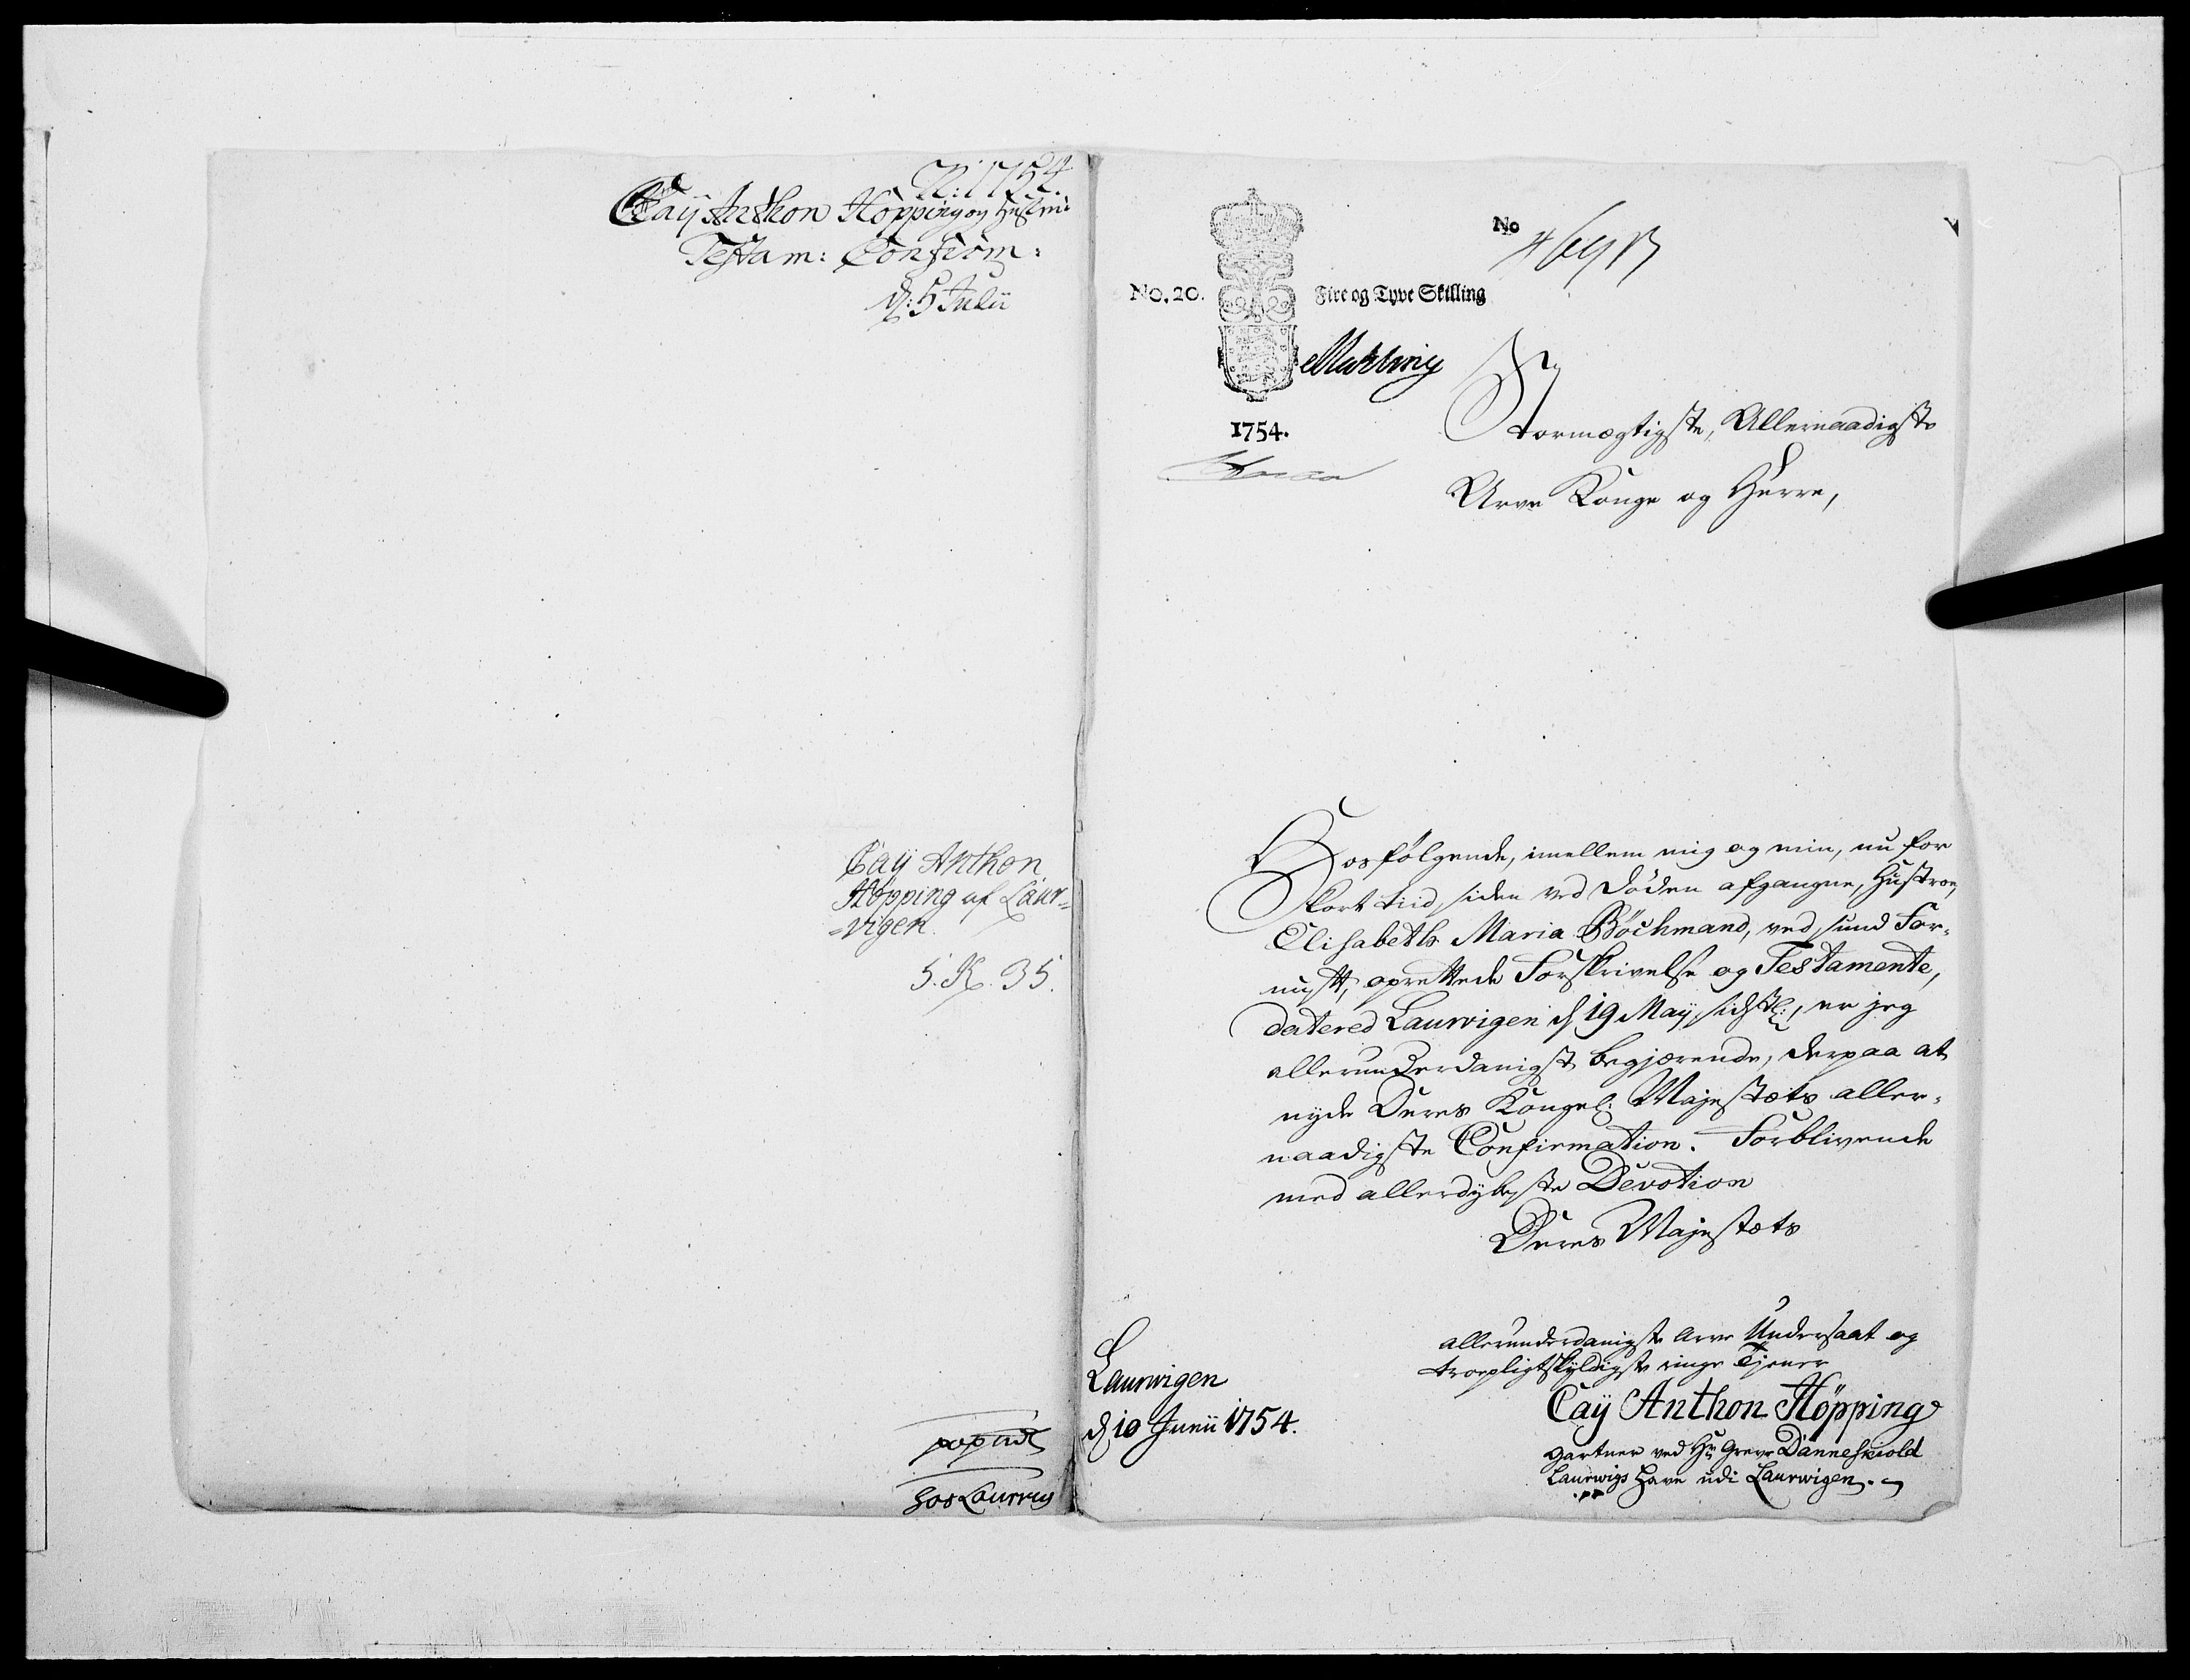 N: 1754
Caÿ Anthon Höpping og Hustrues
Testam: Confirm:
d: 5 Julii
Caÿ Anthon
Höpping af Laur=
=vigen.
5. K. 35.
hos Laurvig
No
No. 20.
Fire og Tyve Skilling
1754.
Stormægtigste, Allernaadigste
Arve Konge og Herre,
Hosfølgende, imellem mig og min, nu for
kort tiid siden ved Døden afgangne, Hustroe,
Elisabeth Maria Böchmand, ved sund For-
nuft, oprettede Forskrivelse og Testamente,
datered Laurvigen d 19 Maÿ sidstl:, er jeg
allerunderdanigst begjærende, derpaa at
nyde Deres Kongel: Majestæts aller-
naadigste Confirmation. Forblivende
med allerdybeste Devotion
Deres Majestæts
allerunderdanigste Arve Undersaat og
troepligtskyldigste ringe Tjener
Caÿ Anthon Höpping
Gartner ved Hr Greve Danneskiold
Laurwigs Have udi Laurwigen.
Laurvigen
d 10 Junii 1754.